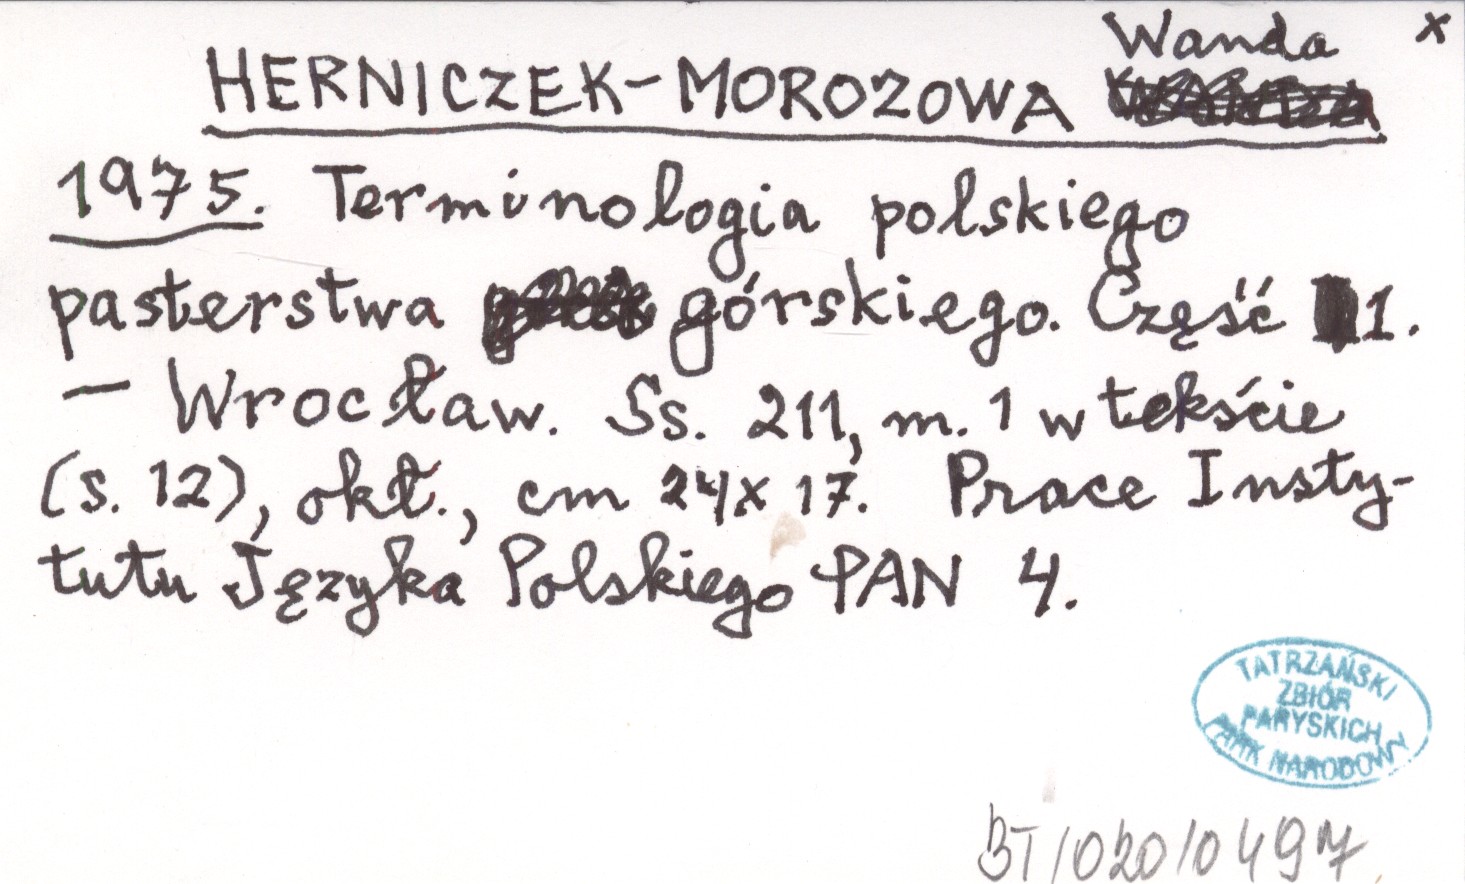 Wanda x
HERNICZEK-MOROZOWA
1975. Terminologia polskiego
pasterstwa górskiego. Część 1.
— Wrocław. Ss. 211, m. 1 w tekście
(s. 12), okł., cm 24x17. Prace Insty-
tutu Języka Polskiego PAN 4.
TATRZAŃSKI
ZBIÓR
PARYSKICH
PARK NARODOWY
BT/020/0497